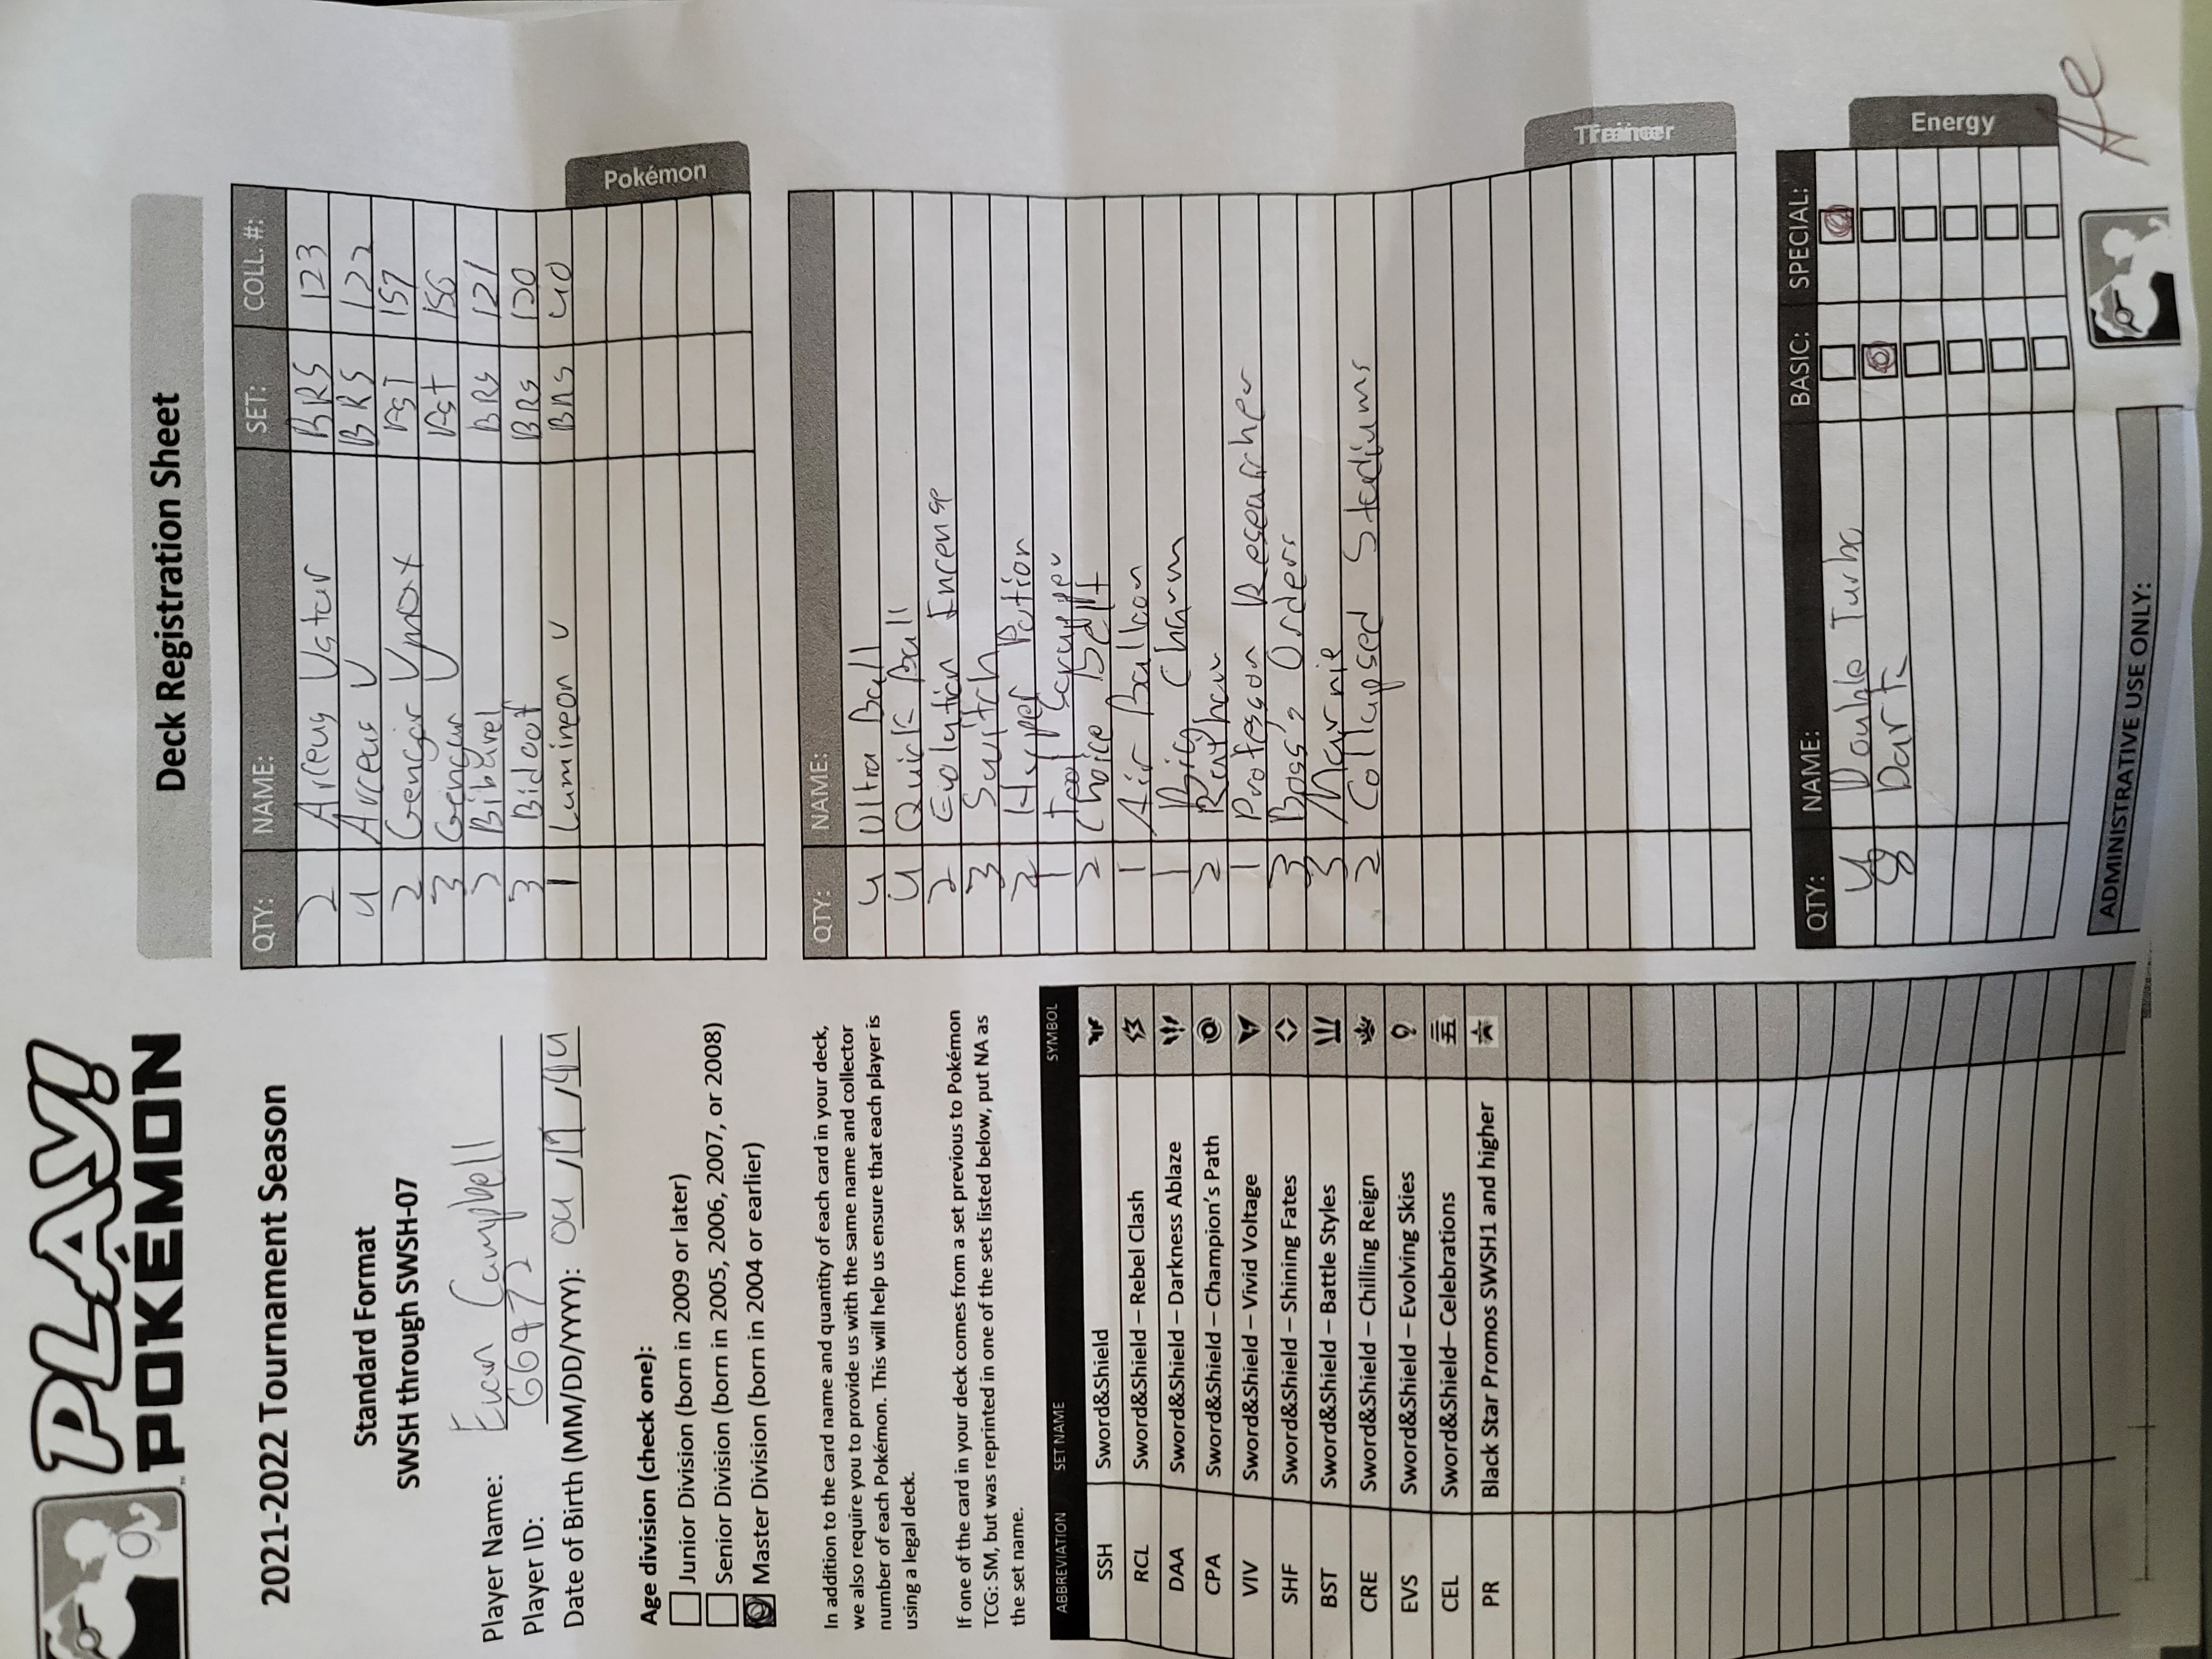 PLAY!
POKÉMON
2021-2022 Tournament Season
Standard Format
SWSH through SWSH-07
Player Name: Evan Campbell
Player ID: 66972
Date of Birth (MM/DD/YYYY): 04/17/94
Age division (check one):
Junior Division (born in 2009 or later)
Senior Division (born in 2005, 2006, 2007, or 2008)
Master Division (born in 2004 or earlier)
In addition to the card name and quantity of each card in your deck,
we also require you to provide us with the same name and collector
number of each Pokémon. This will help us ensure that each player is
using a legal deck.
If one of the card in your deck comes from a set previous to Pokémon
TCG: SM, but was reprinted in one of the sets listed below, put NA as
the set name.
ABBREVIATION SET NAME SYMBOL
SSH Sword&Shield
RCL Sword&Shield – Rebel Clash
DAA Sword&Shield – Darkness Ablaze
CPA Sword&Shield – Champion's Path
VIV Sword&Shield – Vivid Voltage
SHF Sword&Shield – Shining Fates
BST Sword&Shield – Battle Styles
CRE Sword&Shield – Chilling Reign
EVS Sword&Shield – Evolving Skies
CEL Sword&Shield– Celebrations
PR Black Star Promos SWSH1 and higher
Deck Registration Sheet
QTY: NAME: SET: COLL. #:
2 Arceus Vstar BRS 123
4 Arceus V BRS 122
2 Gengar Vmax FST 157
3 Gengar V Fst 156
2 Bibarel BRS 121
3 Bidoof BRS 120
1 Lumineon V BRS 40
Pokémon
QTY: NAME:
4 Ultra Ball
4 Quick Ball
2 Evolution Incense
3 Switch
2 Hyper Potion
1 Tool Scrapper
2 Choice Belt
1 Air Balloon
1 Big Charm
2 Raihan
1 Professor Researcher
3 Boss's Orders
3 Marnie
2 Collapsed Stadiums
Trainer
QTY: NAME: BASIC: SPECIAL:
4 Double Turbo
8 Dark
Energy
ADMINISTRATIVE USE ONLY: